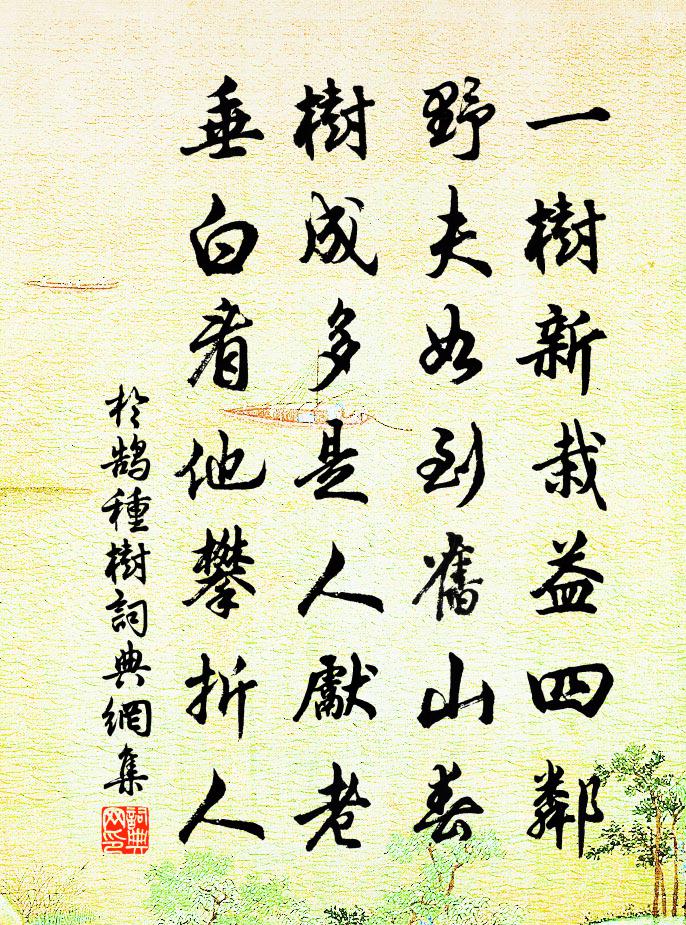 一樹新栽益四鄰
野夫如到舊山春
樹成多是人獻老
垂白看他攀折人
於鵠種樹詞典網集
詞典
网印